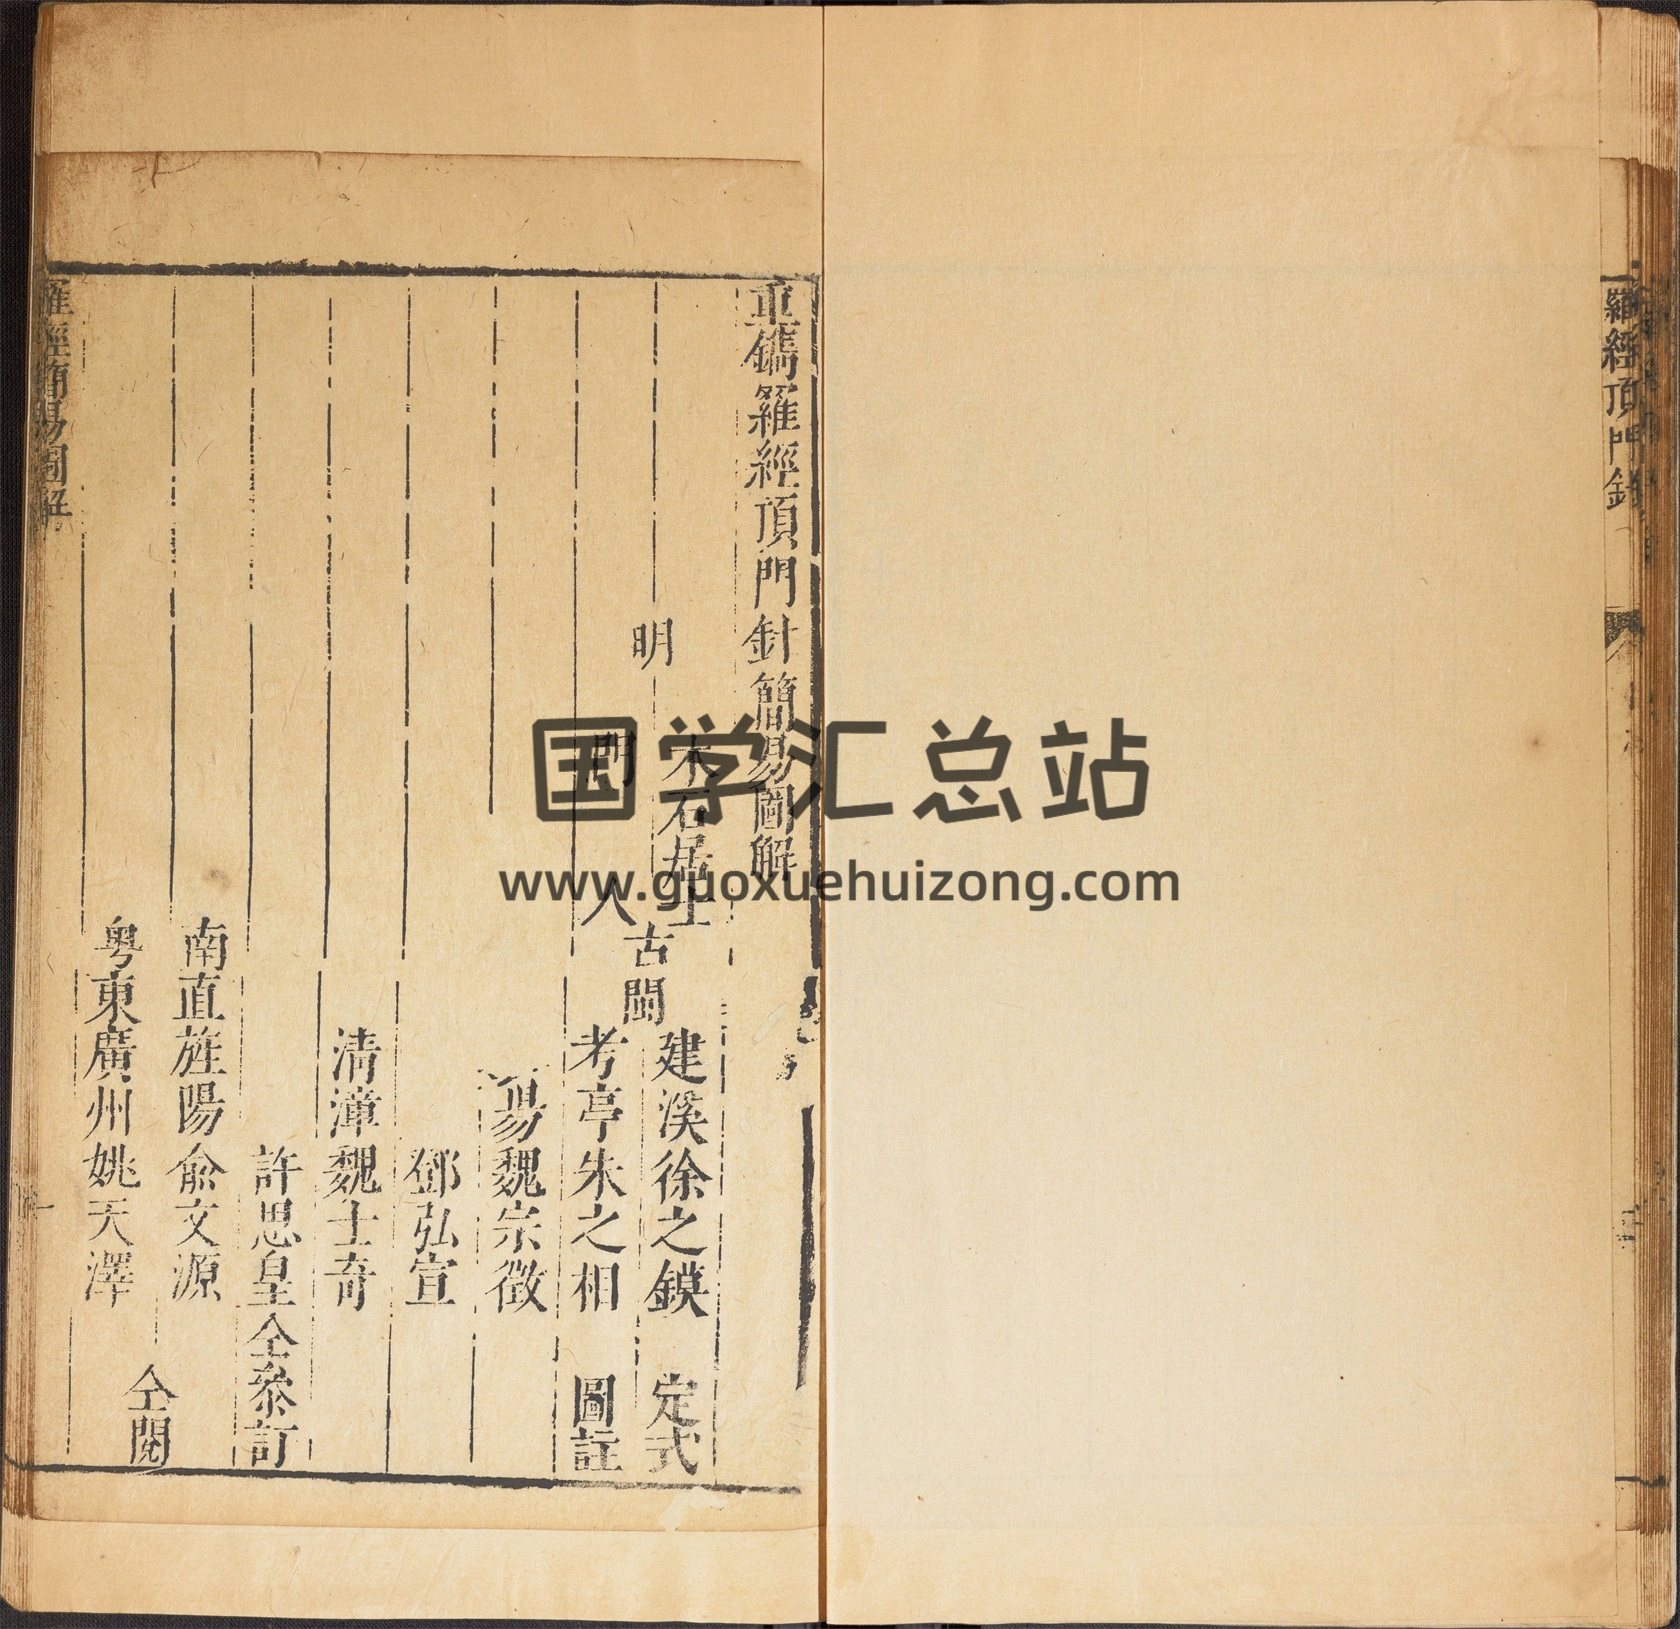 重鐫羅經頂門針簡易圖解
明 木石居士 古閩 建溪徐之鏌 定式
門人 考亭朱之相 圖註
魏宗徵
鄧弘宣
清漳魏士奇
許思皇仝叅訂
南直旌陽俞文源
粵東廣州姚天澤
仝閱
羅經簡易圖解
羅經頂門針
国学汇总站
www.guoxuehuizong.com